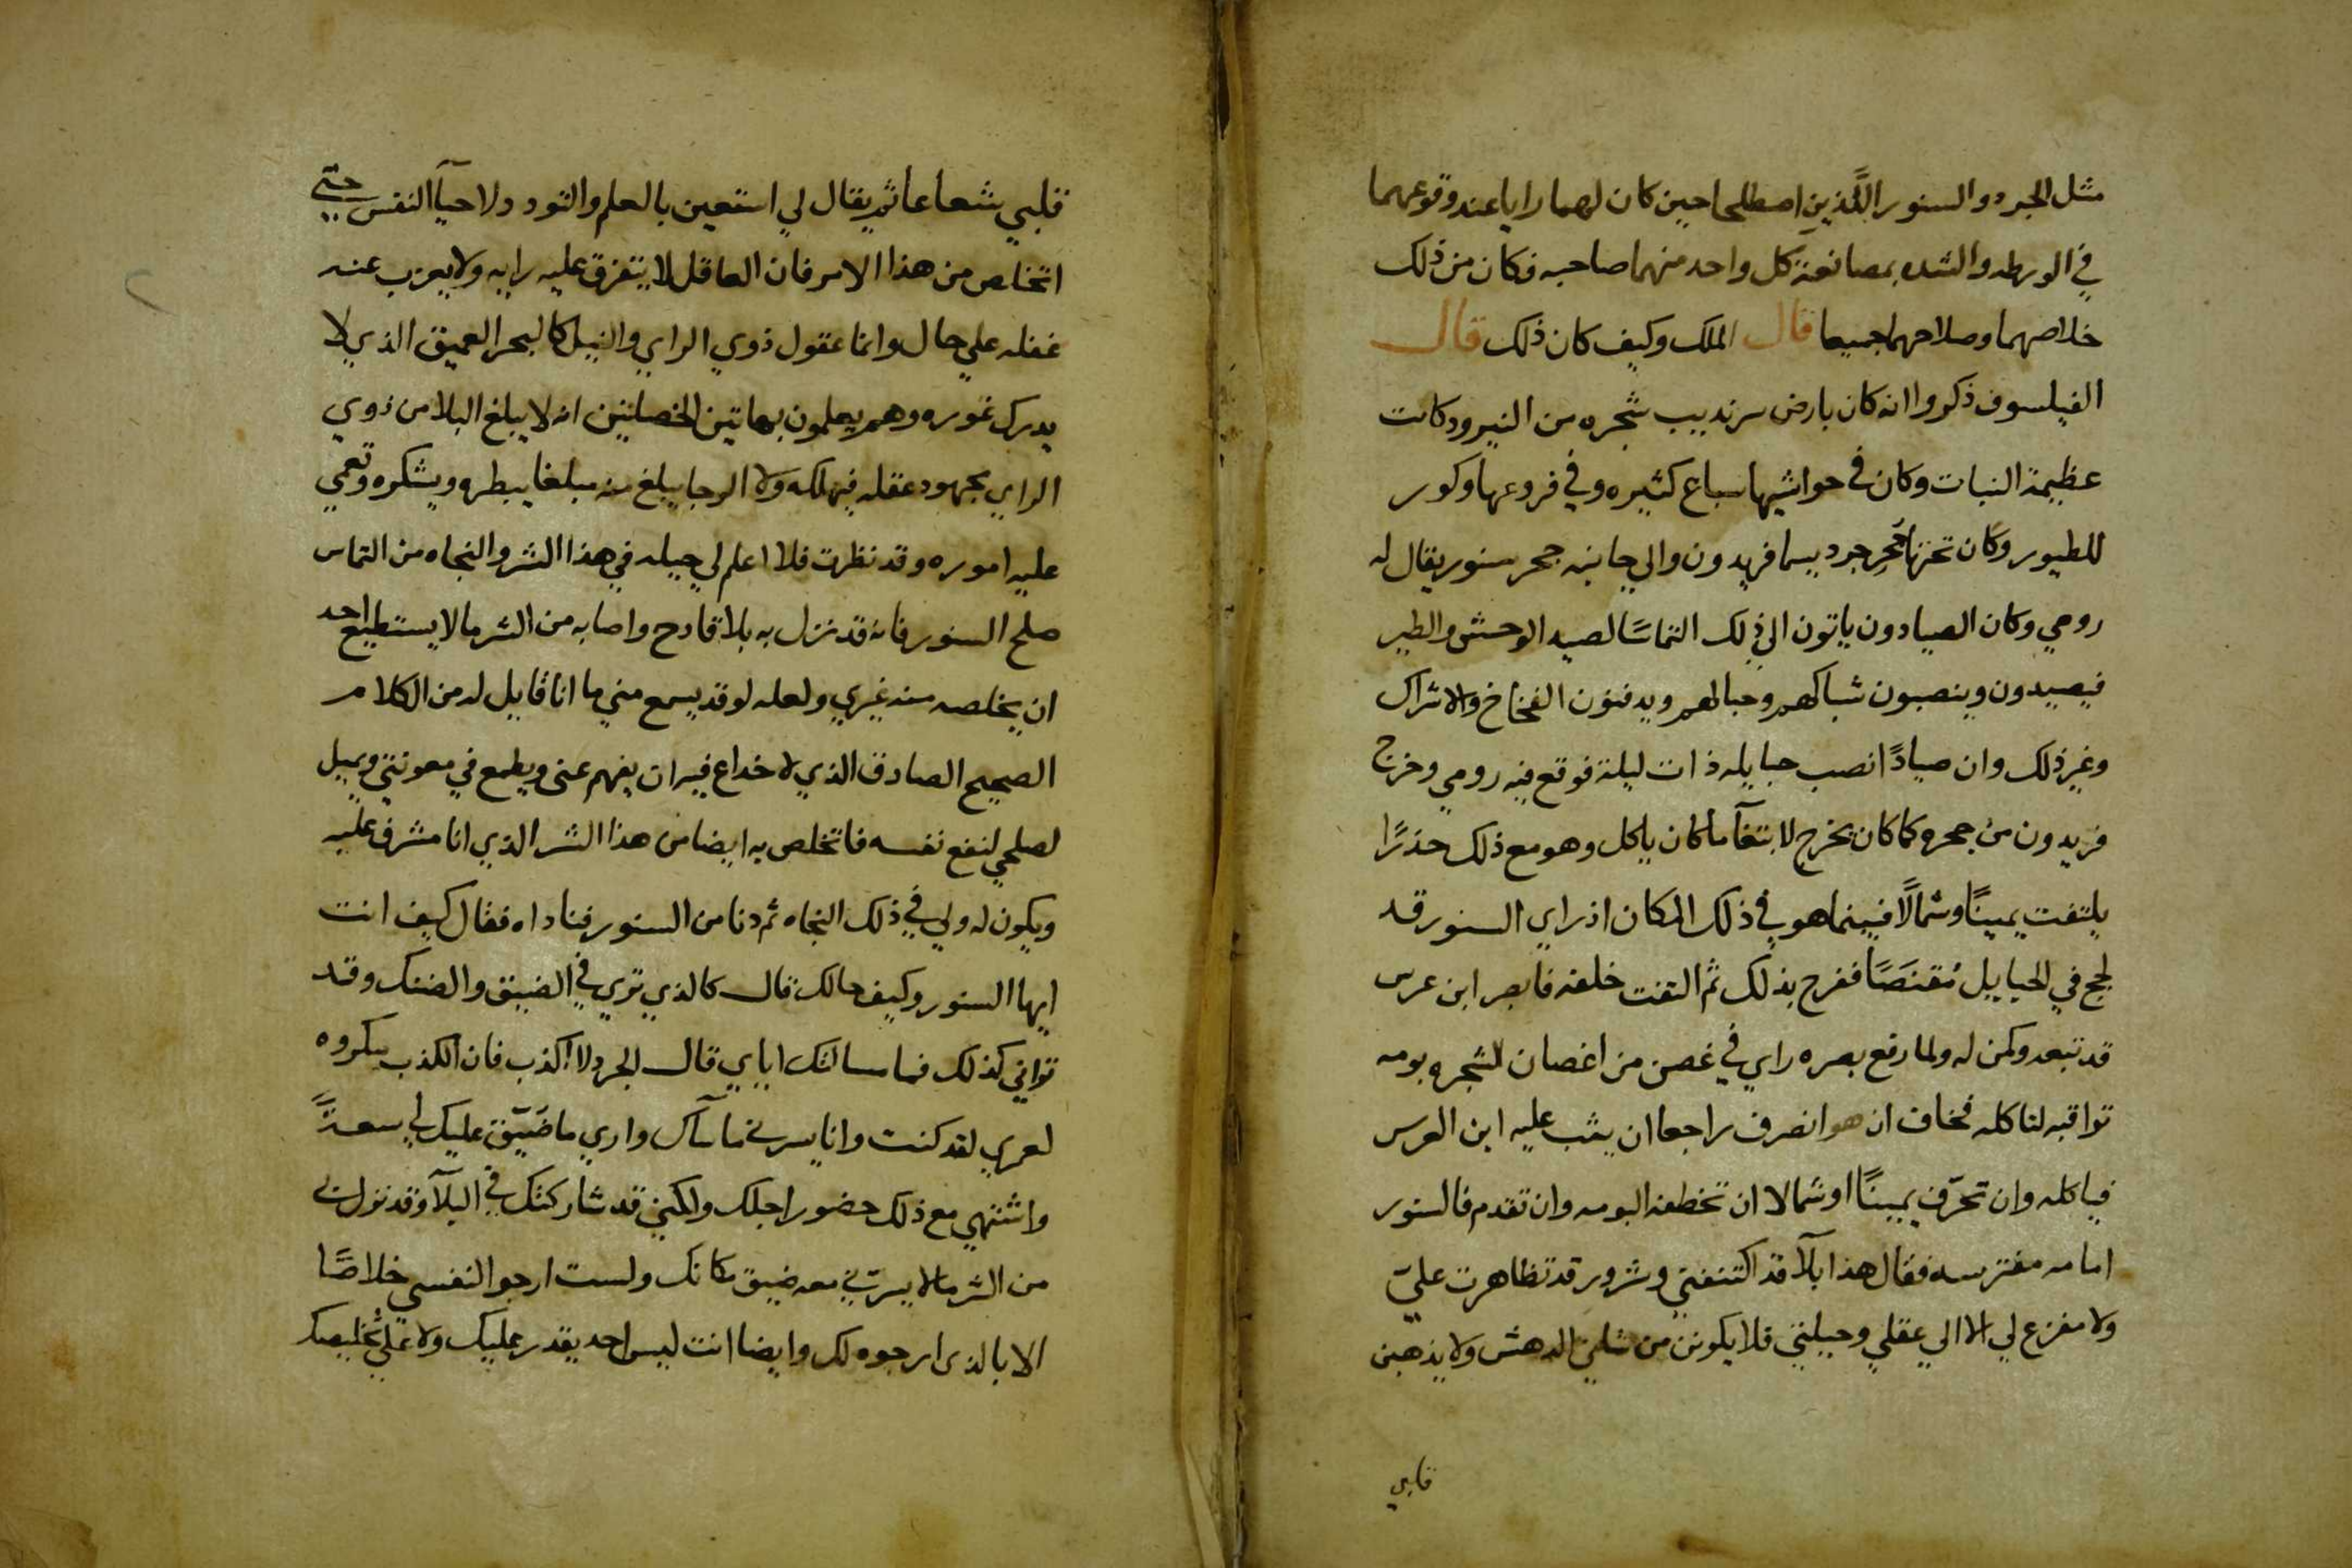 مثل الجرد والسنور اللَّذين اصطلحا حين كان لهما رايا عند وقوعهما
في الورطه والشده بمصانعة كل واحد منهما صاحبه فكان من ذلك
خلاصهما وصلاحهما جميعا قال الملك وكيف كان ذلك قال
الفيلسوف ذكروا انه كان بارض سرنديب شجره من النيرود كانت
عظيمة النبات وكان في حواشيها سباع كثيره وفي فروعها وكور
للطيور وكان تحتها جُحرِ جرد يسما فريدون والي جانبه جحر سنور يقال له
رومي وكان الصيادون ياتون الي ذلك التماسًا لصيد الوحش والطير
فيصيدون وينصبون شباكهم وحبالهم ويدفنون الفخاخ والاشراك
وغير ذلك وان صيادًا نصب حبايله ذات ليلة فوقع فيه رومي وخرج
فريدون من جحره كما كان يخرج لابتغآ ما كان ياكل وهو مع ذلك حذرًا
يلتفت يمينًا وشمالًا فبينما هو في ذلك المكان اذ راي السنور قد
لجج في الحبايل مُقتنَصًا ففرح بذلك ثم التفت خلفه فابصر ابن عرس
قد تبعه وكمن له ولما رفع بصره راي في غصن من اغصان الشجره بومه
تواقبه لتاكله فخاف ان هو انصرف راجعا ان يثب عليه ابن العرس
فياكله وان تحرّف يمينًا او شمالا ان تخطفه البومه وان تقدم فالسنور
امامه مفترسه فقال هذا بلآ قد اكتنفني وشرور قد تظاهرت عليّ
ولا مفزع لي الا الي عقلي وحيلتي فلا يكونن من شاني الدهش ولا يذهبن
قلبي
قلبي شعاعا ثم يقال لي استعين بالعلم والتودد ولا حيآ النفس حتي
اتخلص من هذا الامر فان العاقل لا يتفرق عليه رايه ولا يعزب عنه
غفله علي حال وانما عقول ذوي الراي والنبل كالبحر العميق الذي لا
يدرك غوره وهم يعلمون بهاتين الخصلتين انه لا يبلغ البلا من ذوي
الراي مجهود عقله فيهلكه ولا الرجا يبلغ منه مبلغا يبطره ويشكره وتعمي
عليه اموره وقد نظرت فلا اعلم لي حيله في هذا الشر والنجاه من التماس
صلح السنور فانه قد نزل به بلا فادح واصابه من الشر ما لا يستطيع احد
ان يخلصه منه غيري ولعله لو قد يسمع مني ما انا قايل له من الكلام
الصحيح الصادق الذي لا خداع فيه ان يفهم عني ويطمع في معونتي ويميل
لصلحي لنفع نفسه فاتخلص به ايضا من هذا الشر الذي انا مشرف عليه
ويكون له ولي في ذلك النجاه ثم دنا من السنور فناداه فقال كيف انت
ايها السنور وكيف حالك قال كالذي تري في الضيق والضنك وقد
تواني كذلك فما مسالتك اياي قال الجرد لا اكذب فان الكذب مكروه
لعمري لقد كنت وانا يسرني ما سآك واري ما ضَيّق عليك لي سعةً
واشتهي مع ذلك حضور اجلك ولكني قد شاركتك في البلآ وقد نزل بي
من الشر مالا يسرّني معه ضيق مكانك ولست ارجو النفسي خلاصًا
الا بالذي ارجوه لك وايضا انت ليس احد يقدر عليك ولا علي تخليصك